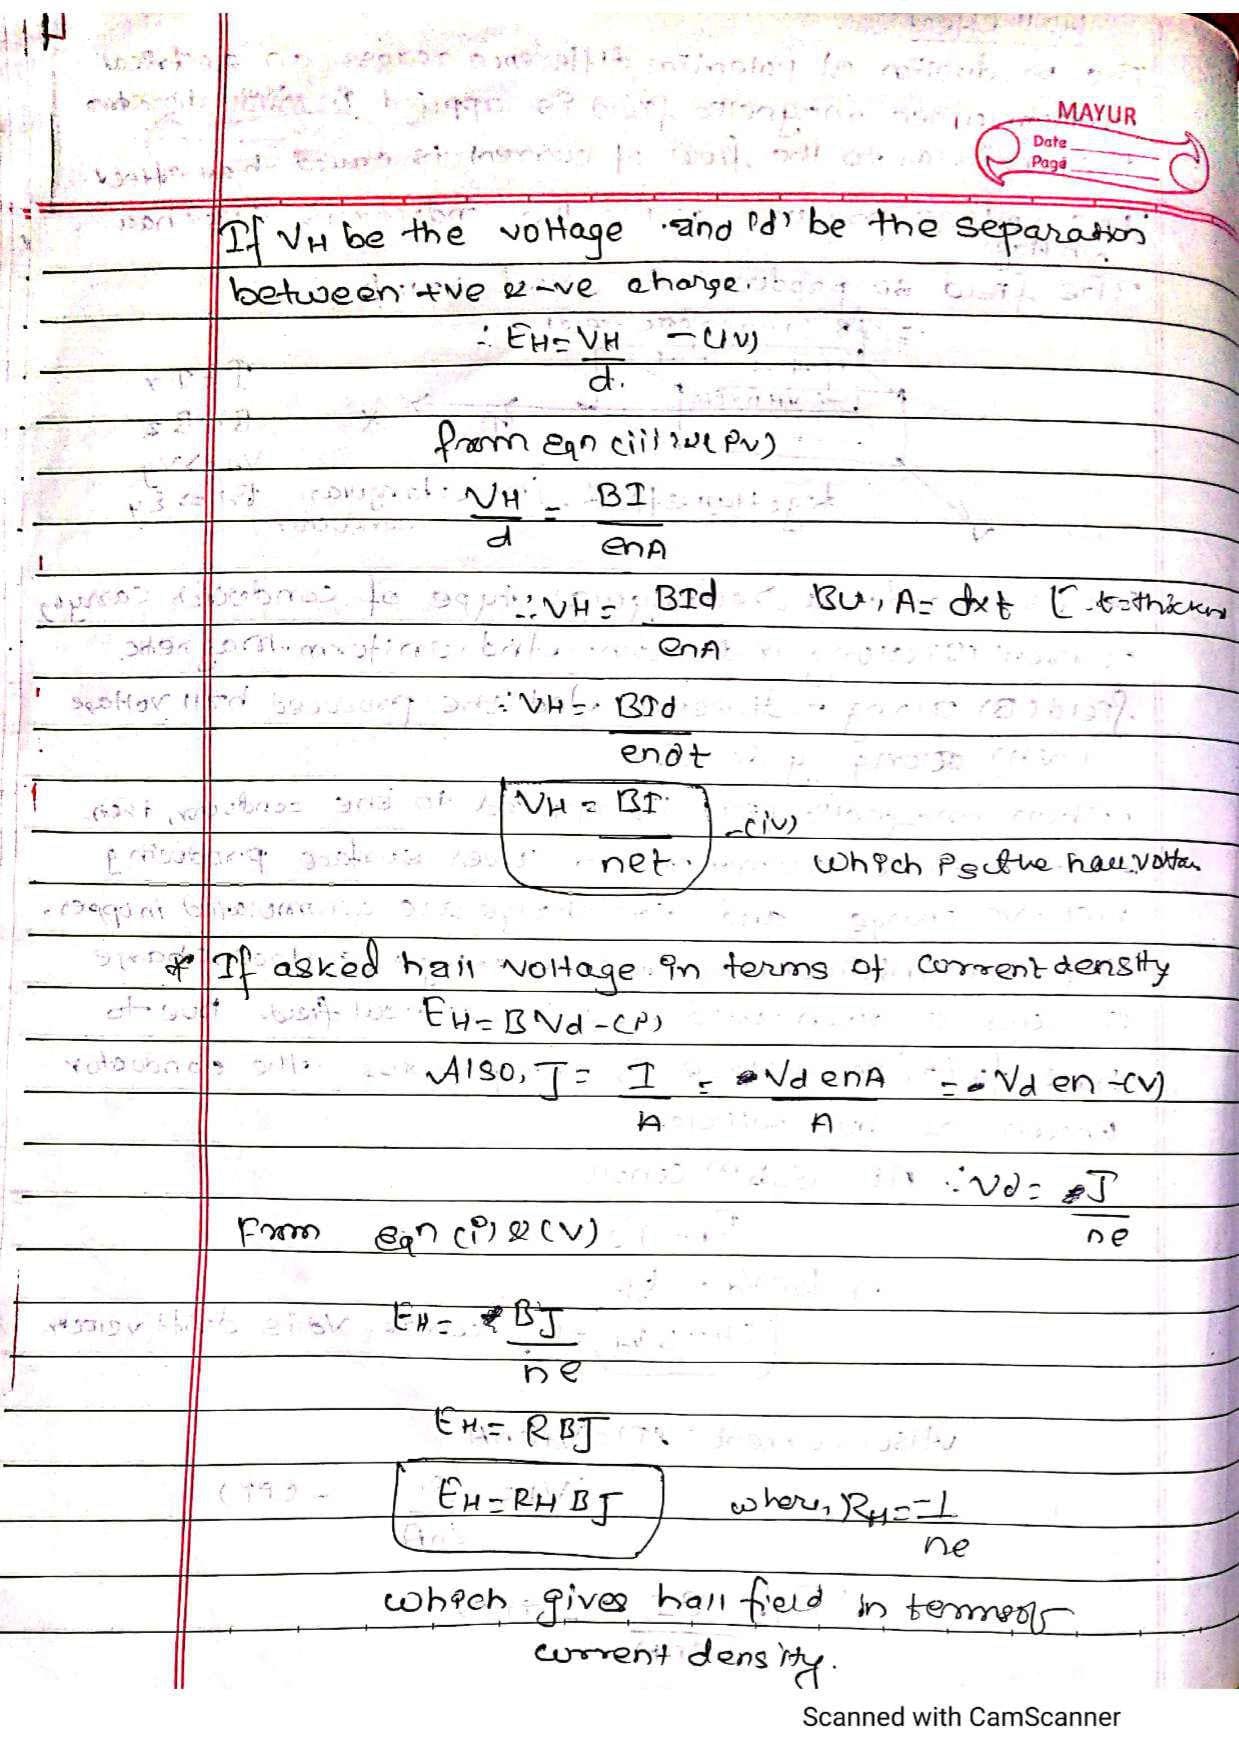 MAYUR
Date
Page
If VH be the voltage and 'd' be the separation
between +ve & -ve charge.
∴ EH = VH/d. - (iv)
from eqn (iii) & (iv)
VH/d = BI/enA
∴ VH = BId/enA But, A = d×t [ t=thickn
∴ VH = BId/endt
VH = BI/net - (iv)
which is the hall volta
* If asked hall voltage in terms of current density
EH = BVd - (i)
Also, J = I/A = Vd enA/A = Vd en - (v)
∴ Vd = J/ne
From eqn (i) & (v)
EH = BJ/ne
EH = RBJ
EH = RH BJ where, RH = -1/ne
which gives hall field in terms of
current density.
Scanned with CamScanner